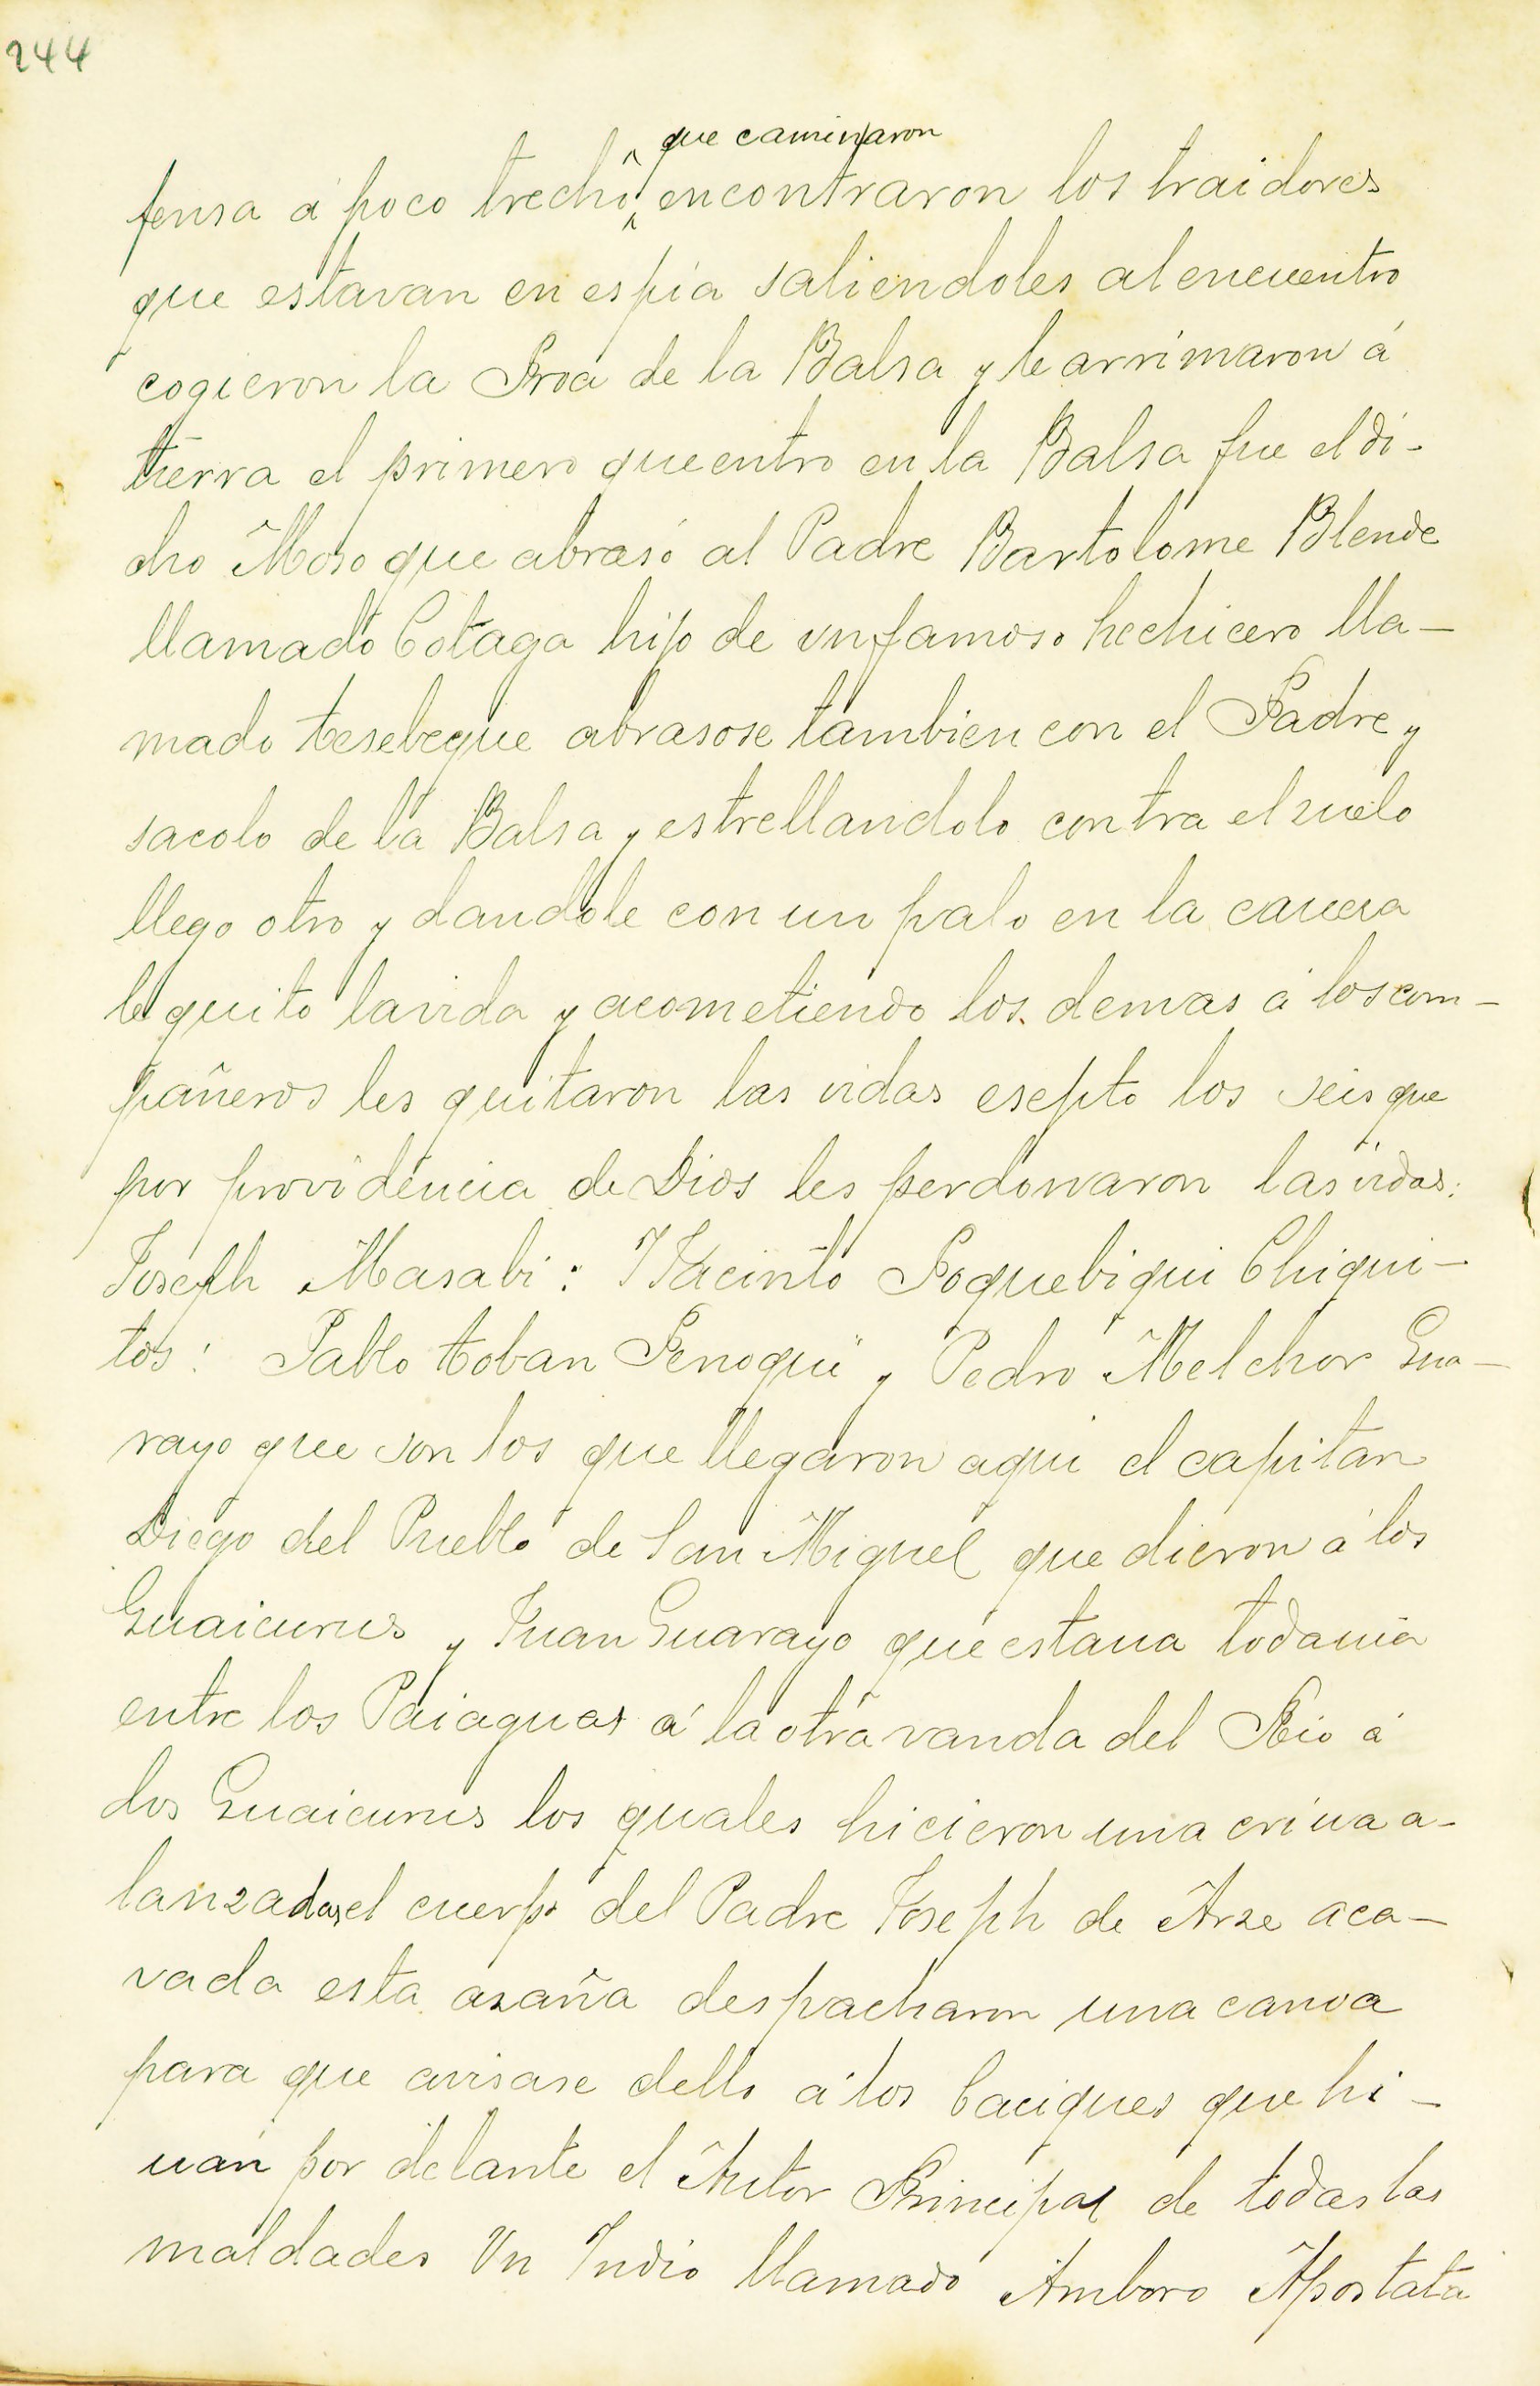 244
que caminaron
fensa á poco trecho encontraron los traidores
que estavan en espia saliendoles al encuentro
cogieron la Proa de la Balsa y le arrimaron á
tierra el primero que entro en la Balsa fue el di-
cho Moso que abrasó al Padre Bartolome Blende
llamado Cotaga hijo de vn famoso hechicero lla-
mado tesebeque abrasose tambien con el Padre y
sacolo de la Balsa y estrellandolo contra el suelo
llego otro y dandole con un palo en la cauesa
le quito la vida y acometiendo los demas á los com-
pañeros les quitaron las vidas esepto los seis que
por providencia de Dios les perdonaron las vidas:
Joseph Masabi: Jacinto Poquebiqui Chiqui-
tos: Pablo toban Penoqui y Pedro Melchor Gua-
rayo que son los que llegaron aqui el capitan
Diego del Pueblo de San Miguel que dieron á los
Guaicurus y Juan Guarayo que estaua todauia
entre los Paiaguas á la otra vanda del Rio á
los Guaicurus los quales hicieron una criua a-
lanzadas el cuerpo del Padre Joseph de Arze aca-
vada esta azaña despacharon una canoa
para que avisase dello á los Caciques que hi-
uan por delante el Autor Principal de todas las
maldades Vn Indio llamado Amboro Apostata